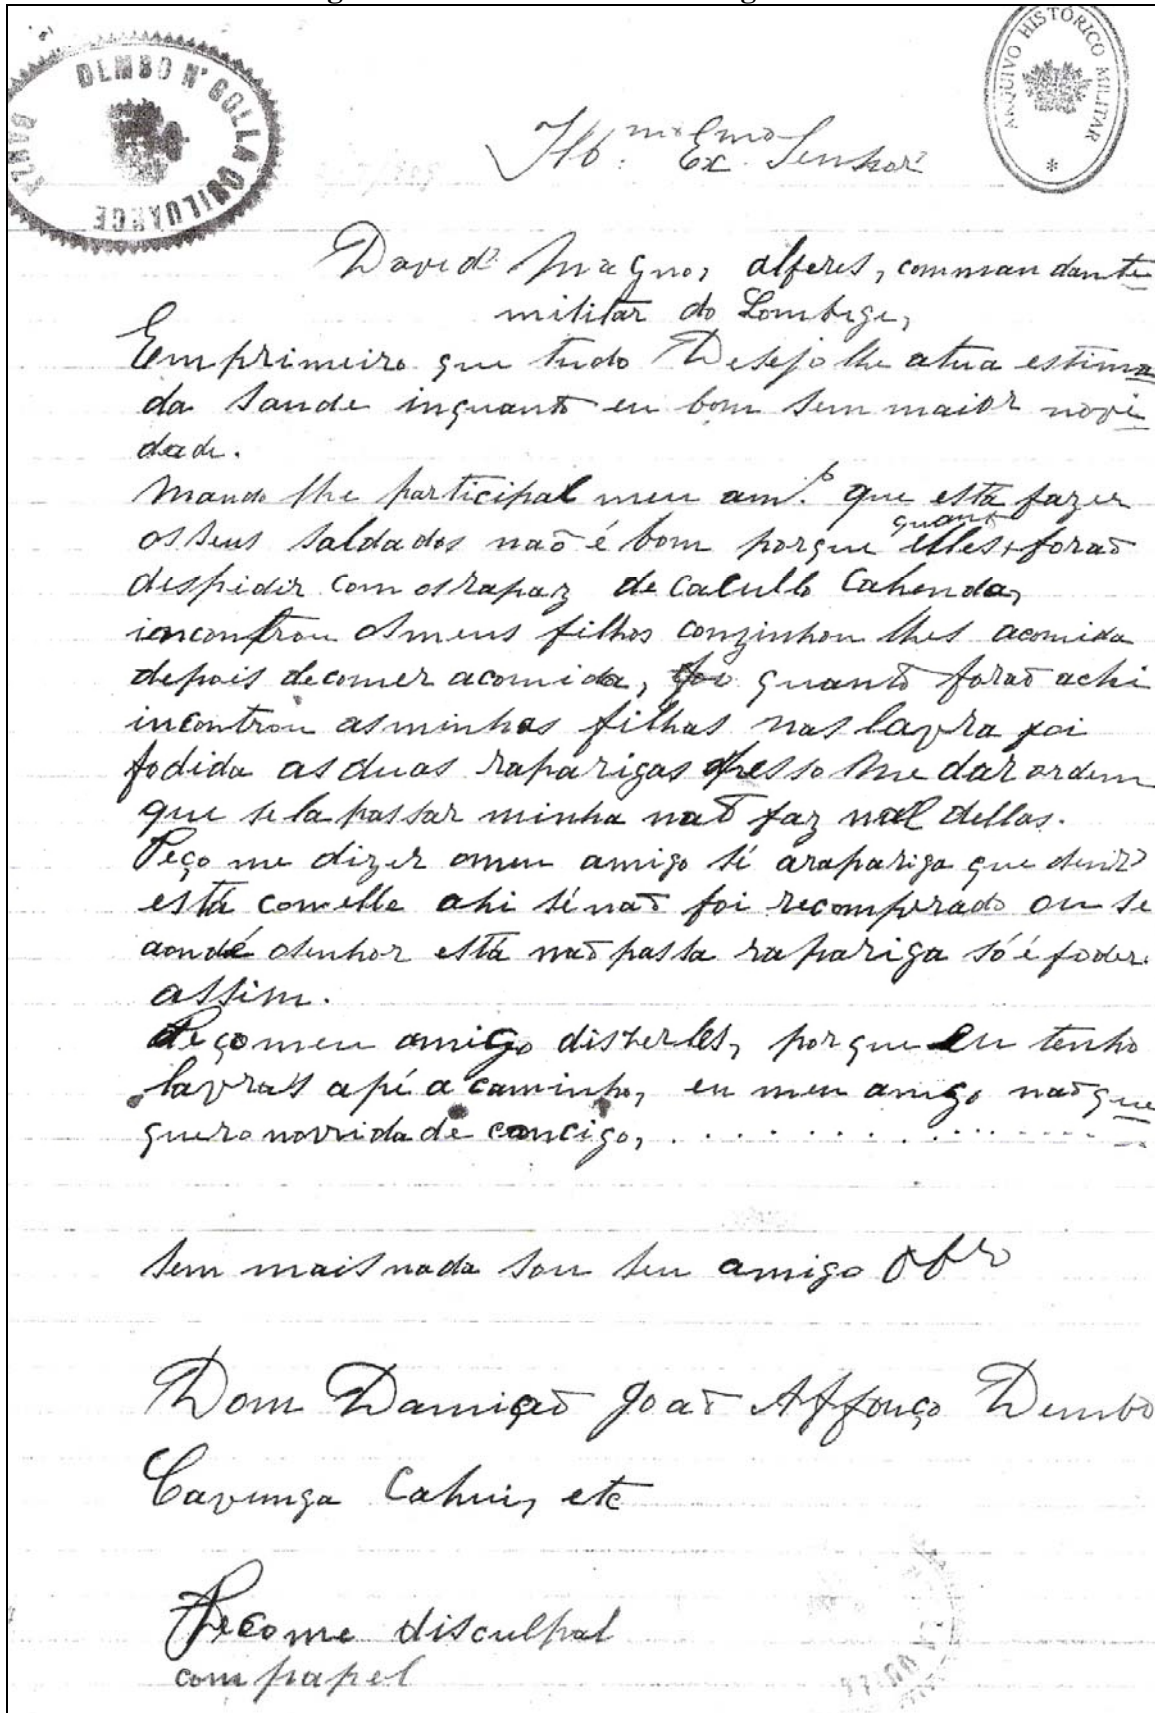 DEMBO N'GOLLA QUILUANGE
BANZA
ARQUIVO HISTÓRICO MILITAR
*
Ill.mo Ex.mo Senhor
David Magno, alferes, commandante
militar do Lombige,
Em primeiro que tudo Desejo lhe atua estima
da Saude inquanto eu bom sem maior novi
dade.
Mando lhe participal meu am.º que está fazer
os seus Saldados naõ é bom porque quanto elles foraõ
despidir com os rapaz de Caculto Cahenda,
incontrou osmeus filhos conzinhou lhes acomida
depois decomer acomida, quanto foraõ achi
incontrou asminhas filhas nas lavra foi
fodida as duas raparigas presso me dar ordem
que se la passar minha naõ faz mal dellas.
Peço me dizer omeu amigo sí arapariga que
está comelle ahi sí naõ foi recomprado ou se
aondé osenhor está naõ passa rapariga só é foder
assim.
Peço meu amigo disterles, porque eu tenho
lavras apé a caminho, eu meu amigo naõ que
quero novridade comcigo, . . . . . . . . . . . . . .
Sem mais nada sou seu amigo
Dom Damiaõ Joaõ Affonço Dembo
Cavunga Cahui, etc
Peço me disculpal
com papel